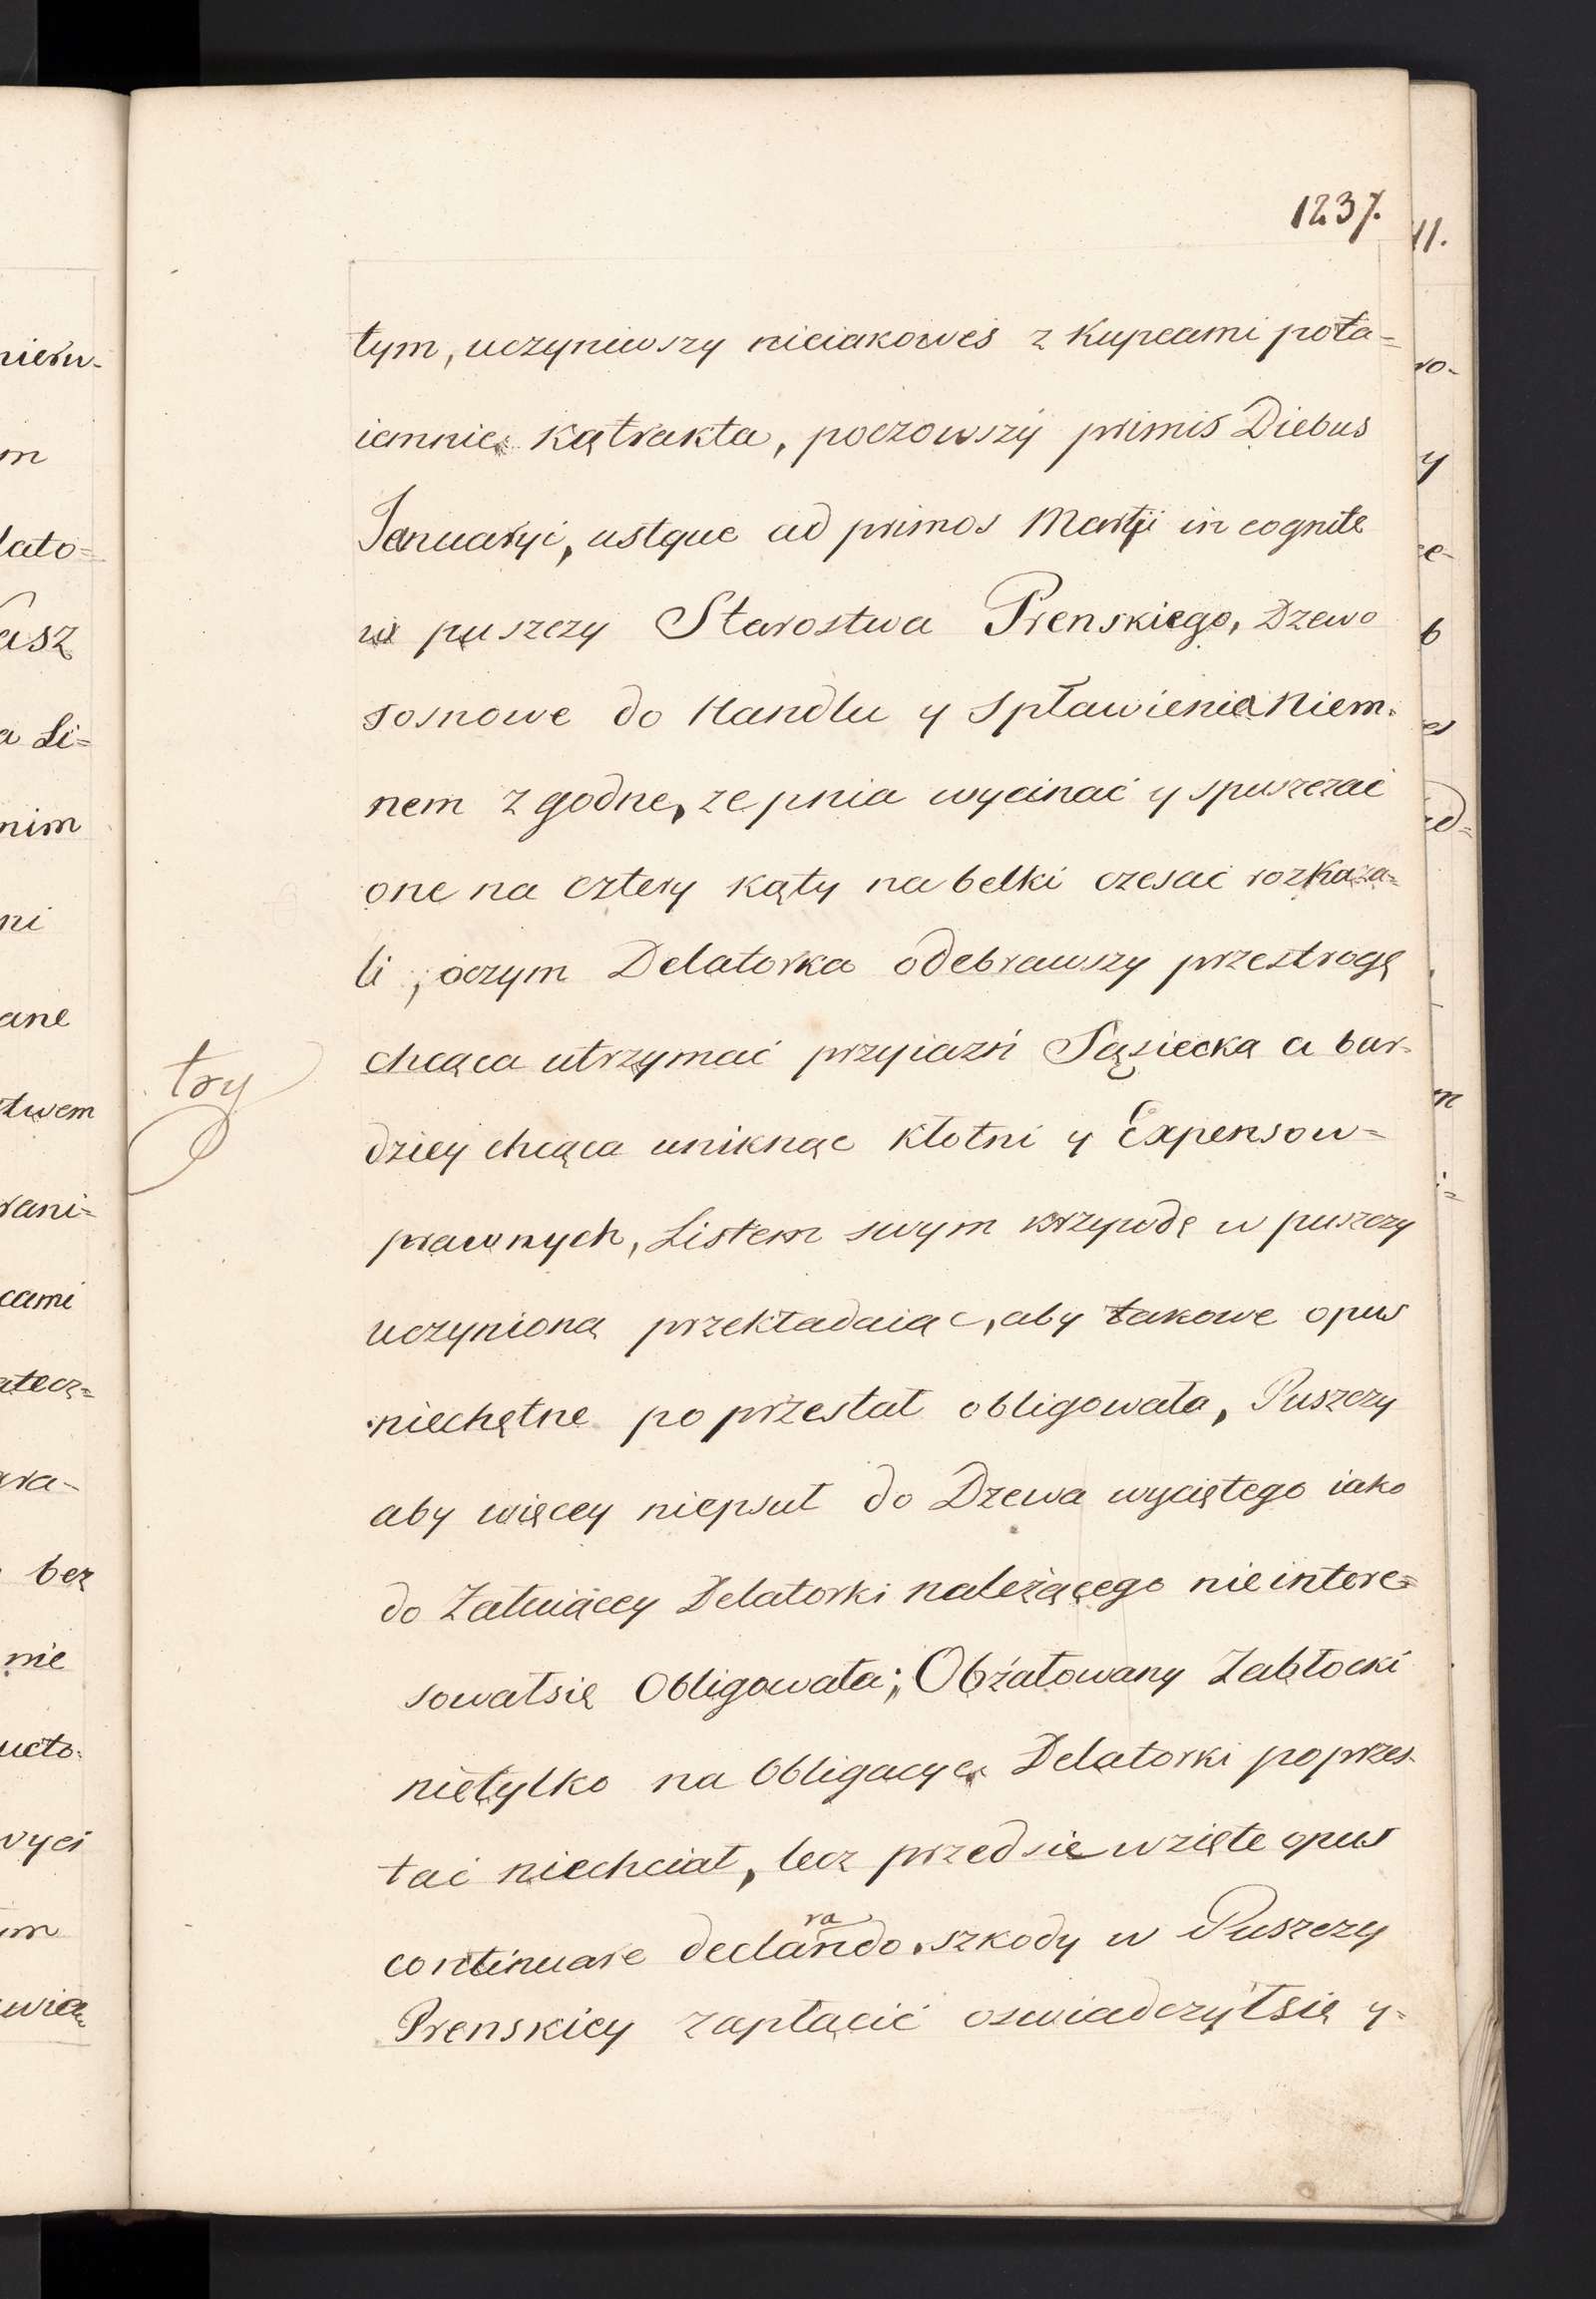 1237.
tym, uczyniwszy nieiakoweś z Kupcami pota=
iemnie kątrakta, poczowszy primis Diebus
Januaryi, ustque ad primos Martji in cognite
w puszczy Starostwa Prenskiego, Dzewo
sosnowe do Handlu y Spławienia Niem=
nem zgodne, ze pnia wycinać y spuszczać
one na cztery kąty na belki czesać rozkaza=
li, oczym Delatorka odebrawszy przestrogę
chcąca utrzymać przyiazń Sąsiecką a bar=
dziey chcąca uniknąc kłotni y Expensow=
prawnych, Listem swym krzywdę w puszczy
uczynioną przekładaiąc, aby takowe opus
niechętne poprzestał obligowała, Puszczy
aby więcey niepsuł do Drzewa wyciętego iako
do Załuiącey Delatorki należącego nieintere=
sowałsię Obligowała; Obżałowany Zabłocki
nietylko na Obligacye Delatorki poprzes=
tać niechciał, lecz przedsiewzięte opus
continuare declarando szkody w Puszczy
Prenskiey zapłacić oswiadczyłsię y=
try